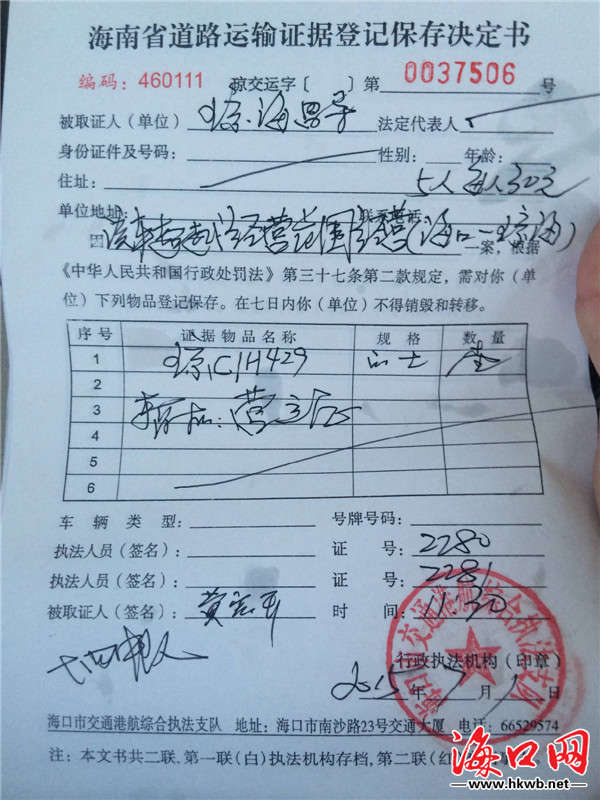 海南省道路运输证据登记保存决定书
编码：460111 琼交运字〔 〕第 0037506 号
被取证人（单位） 琼海 法定代表人
身份证件及号码： 性别： 年龄：
住址： 5人每人30元
单位地址：
因该车 超 经营范围经营（海口—琼海）一案，依据
《中华人民共和国行政处罚法》第三十七条第二款规定，需对你（单
位）下列物品登记保存。在七日内你（单位）不得销毁和转移。
序号 证据物品名称 规格 数量
1 琼C1H429 的士 壹
2
3 营运证
4
5
6
车辆类型： 号牌号码：
执法人员（签名）： 证号：2280
执法人员（签名）： 证号：2281
被取证人（签名）： 黄 时间：11.30
行政执法机构（印章）
2015年7月1日
海口市交通港航综合执法支队
海口市交通港航综合执法支队 地址：海口市南沙路23号交通大厦 电话：66529574
注：本文书共二联，第一联（白）执法机构存档，第二联（红
海口网
www.hkwb.net